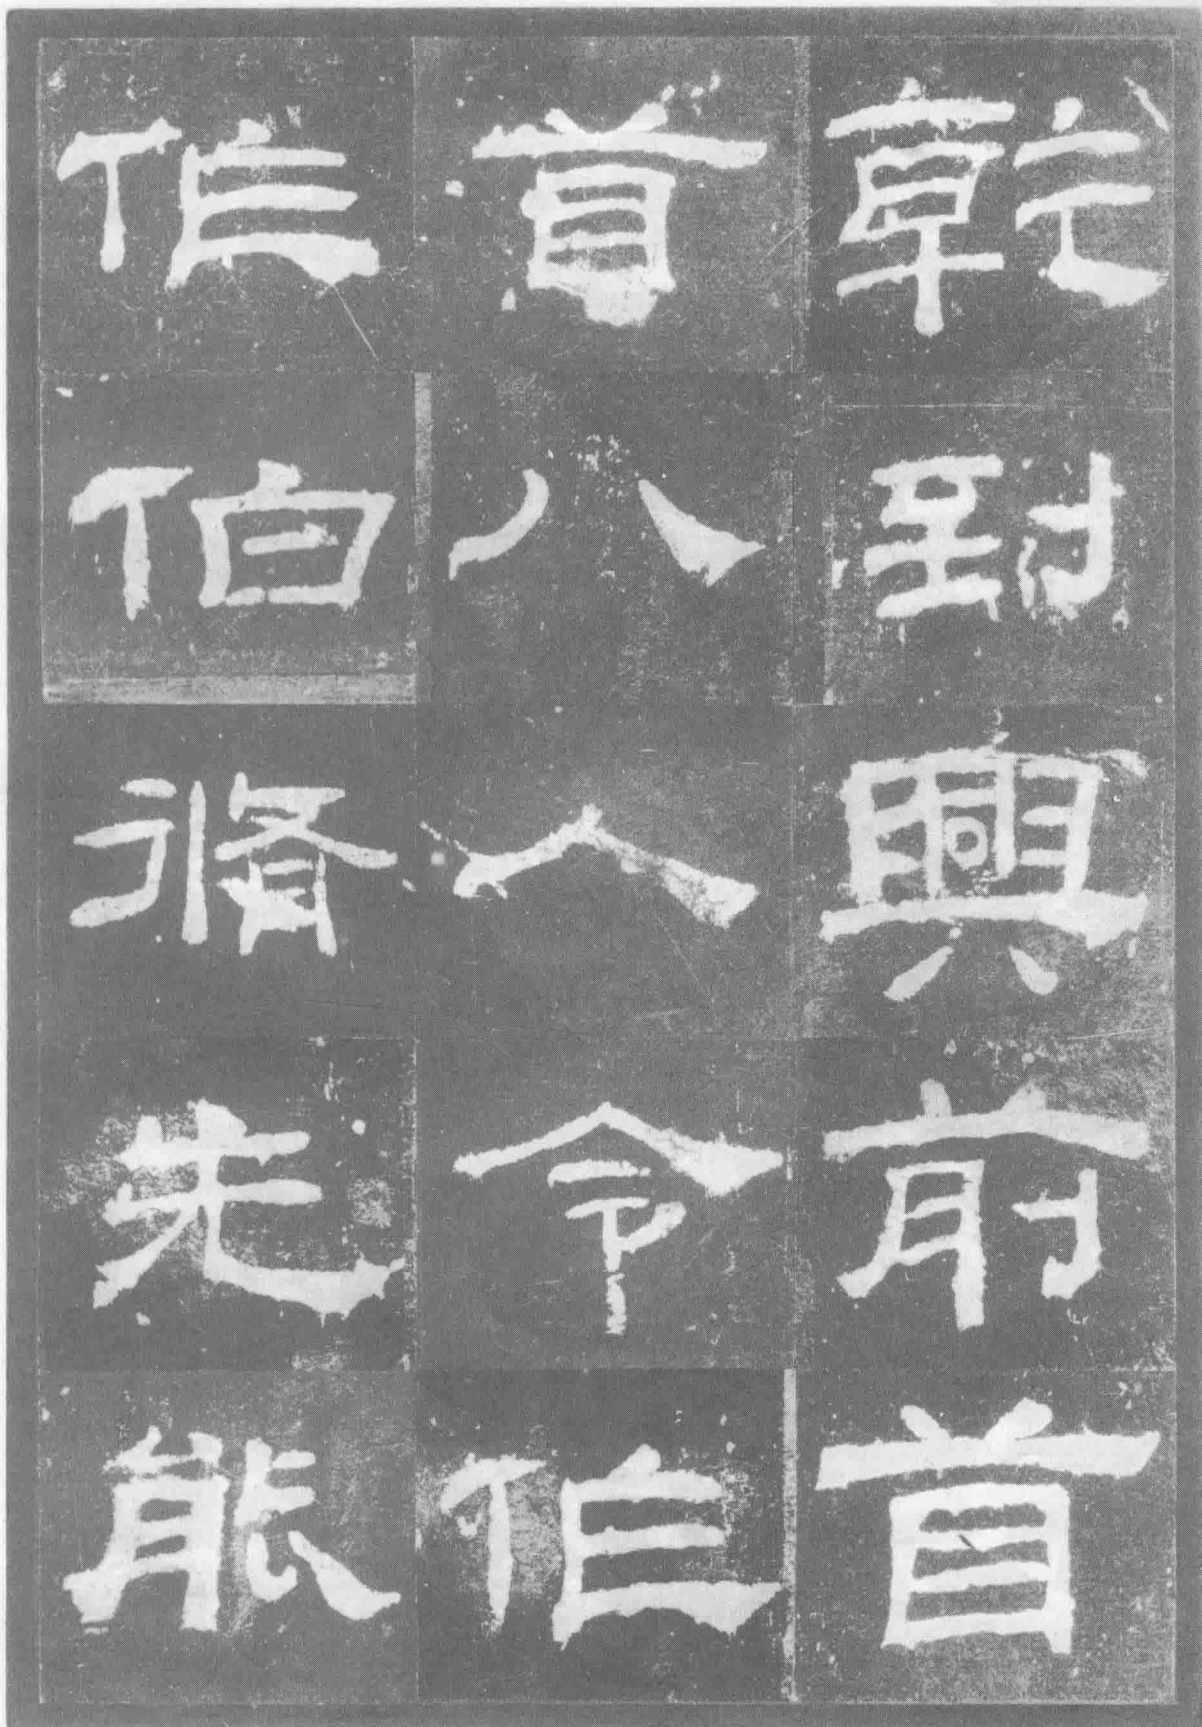 乾到興前首
首八人令作
作伯脩先能